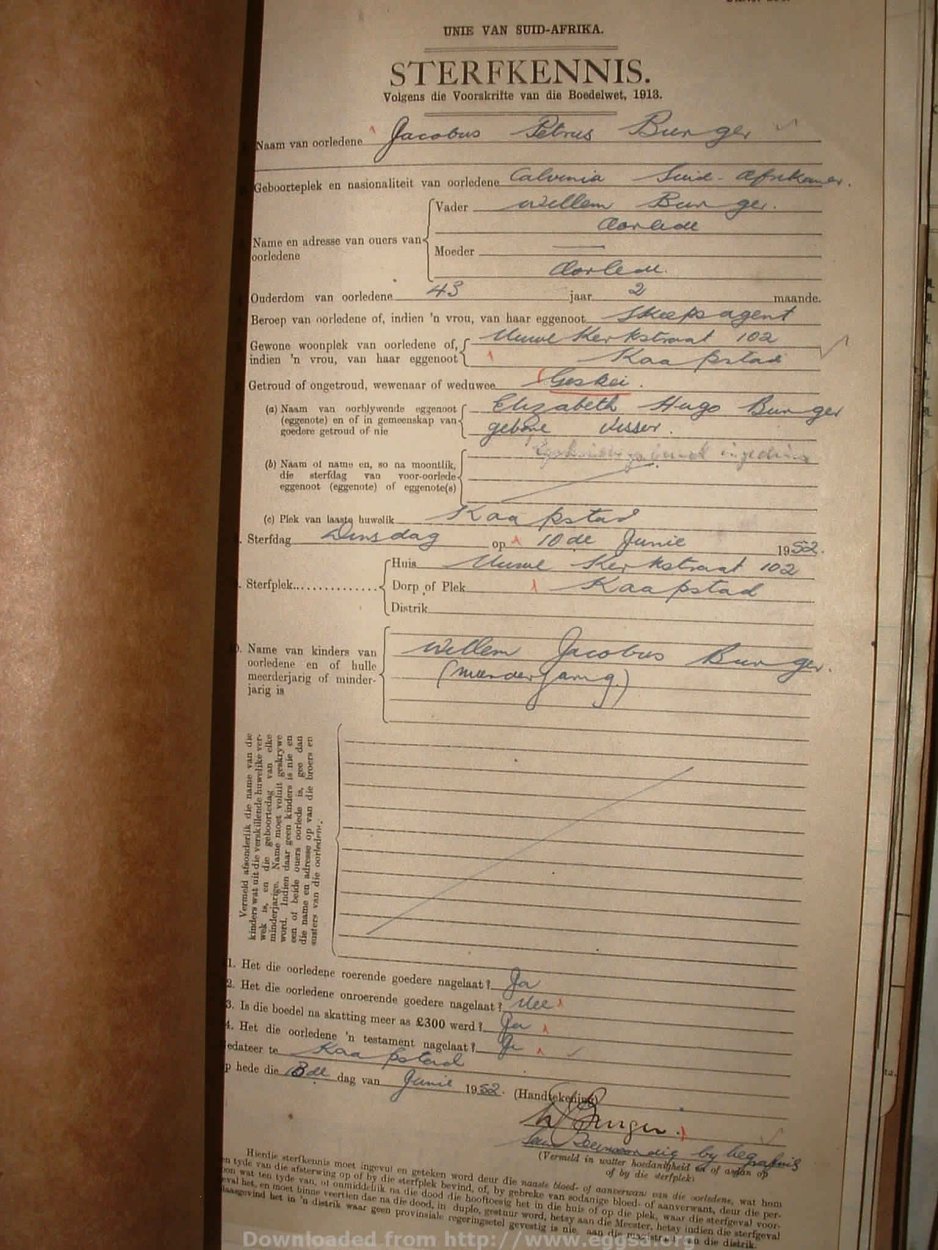 UNIE VAN SUID-AFRIKA.
STERFKENNIS.
Volgens die Voorskrifte van die Boedelwet, 1913.
Naam van oorledene Jacobus Petrus Burger
Geboorteplek en nasionaliteit van oorledene Calvinia Suid-Afrikaner.
Name en adresse van ouers van oorledene
Vader Willem Burger.
Oorlede
Moeder
Oorlede.
Ouderdom van oorledene 43 jaar 2 maande.
Beroep van oorledene of, indien 'n vrou, van haar eggenoot Skeepsagent
Gewone woonplek van oorledene of, Nuwe Kerkstraat 102
indien 'n vrou, van haar eggenoot Kaapstad
Getroud of ongetroud, wewenaar of weduwee Geskei.
(a) Naam van oorblywende eggenoot Elizabeth Hugo Burger
(eggenote) en of in gemeenskap van gebore Visser.
goedere getroud of nie
(b) Naam of name en, so na moontlik,
die sterfdag van voor-oorlede
eggenoot (eggenote) of eggenote(s)
(c) Plek van laaste huwelik Kaapstad
Sterfdag Dinsdag op 10de Junie 1952.
Sterfplek
Huis Nuwe Kerkstraat 102
Dorp of Plek Kaapstad
Distrik
Name van kinders van Willem Jacobus Burger.
oorledene en of hulle (minderjarig)
meerderjarig of minder-
jarig is
Vermeld afsonderlik die name van die
kinders wat uit die verskillende huwelike ver-
wek is, en die geboortedag van elke
minderjarige. Name moet voluit geskrywe
word. Indien daar geen kinders is nie en
een of beide ouers oorlede is, gee dan
die name en adresse op van die broers en
susters van die oorledene.
1. Het die oorledene roerende goedere nagelaat? Ja
2. Het die oorledene onroerende goedere nagelaat? Nee
3. Is die boedel na skatting meer as £300 werd? Ja
4. Het die oorledene 'n testament nagelaat? Ja
edateer te Kaapstad
p hede die dag van Junie 1952. (Handtekening)
W Burger.
Teenwoordig by begrafnis
(Vermeld in watter hoedanigheid en of aanwesig op
of by die sterfplek)
Hierdie sterfkennis moet ingevul en geteken word deur die naaste bloed- of aanverwant van die oorledene, wat hom
en tyde van die afsterwing op of by die sterfplek bevind, of, by gebreke van sodanige bloed- of aanverwant, deur die per-
oon wat ten tyde van, of onmiddellik na die dood die hooftoesig het in die huis of op die plek, waar die sterfgeval voor-
eval het, en moet binne veertien dae na die dood, in duplo, gestuur word, hetsy aan die Meester, hetsy indien die sterfgeval
plaasgevind het in 'n distrik waar geen provinsiale regeringsetel gevestig is nie, aan die magistraat van die distrik.
Downloaded from http://www.eggsa.org